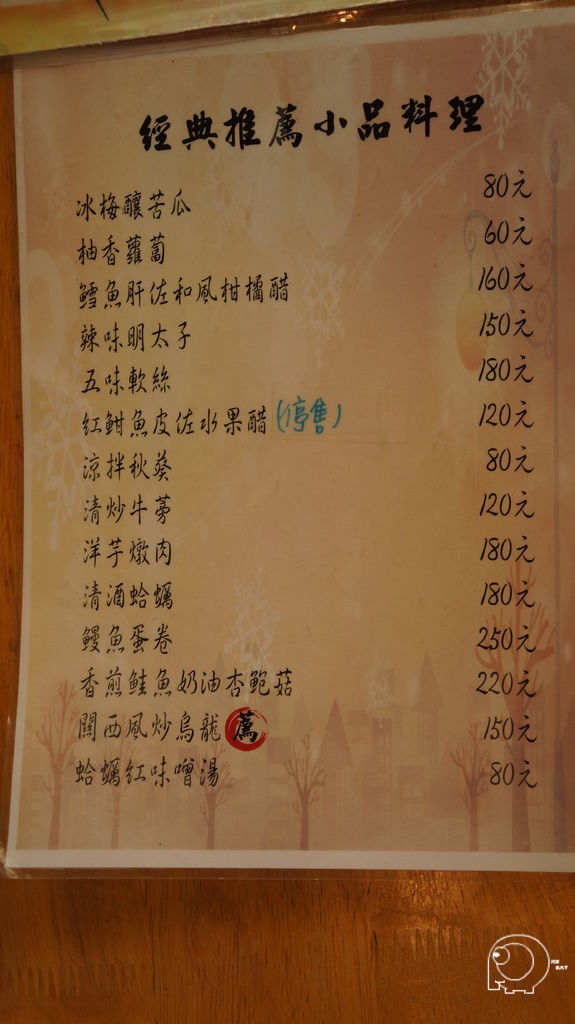 經典推薦小品料理
冰梅釀苦瓜 80元
柚香蘿蔔 60元
鱈魚肝佐和風柑橘醋 160元
辣味明太子 150元
五味軟絲 180元
紅魽魚皮佐水果醋(停售) 120元
涼拌秋葵 80元
清炒牛蒡 120元
洋芋燉肉 180元
清酒蛤蠣 180元
鰻魚蛋卷 250元
香煎鮭魚奶油杏鮑菇 220元
關西風炒烏龍 薦 150元
蛤蠣紅味噌湯 80元
ICE
EAT